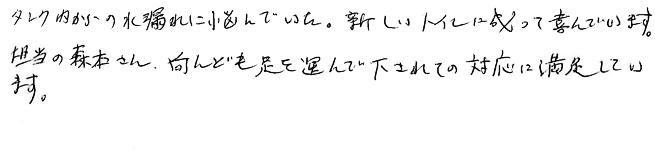 タンク内からの水漏れに悩んでいた。新しいトイレに成って喜んでいます。
担当の森本さん、何んども足を運んで下されての対応に満足してい
ます。